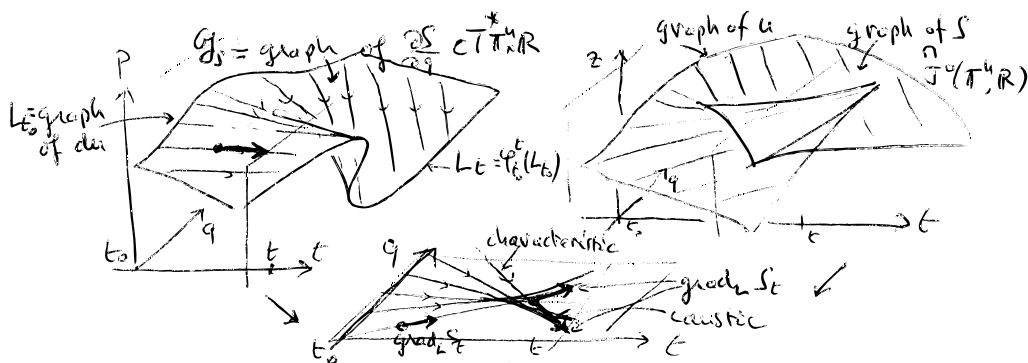 P
G_S = graph of ∂S/∂q ⊂ T*𝕋ⁿ×ℝ
L_{t_0} = graph
of du
L_t = φ_{t_0}^t(L_{t_0})
q
t_0
t
t
z
graph of u
graph of S
∩
J⁰(𝕋ⁿ,ℝ)
q
t_0
t
t
q
characteristic
grad_L S_t
caustic
grad_L S_t
t_0
t
t